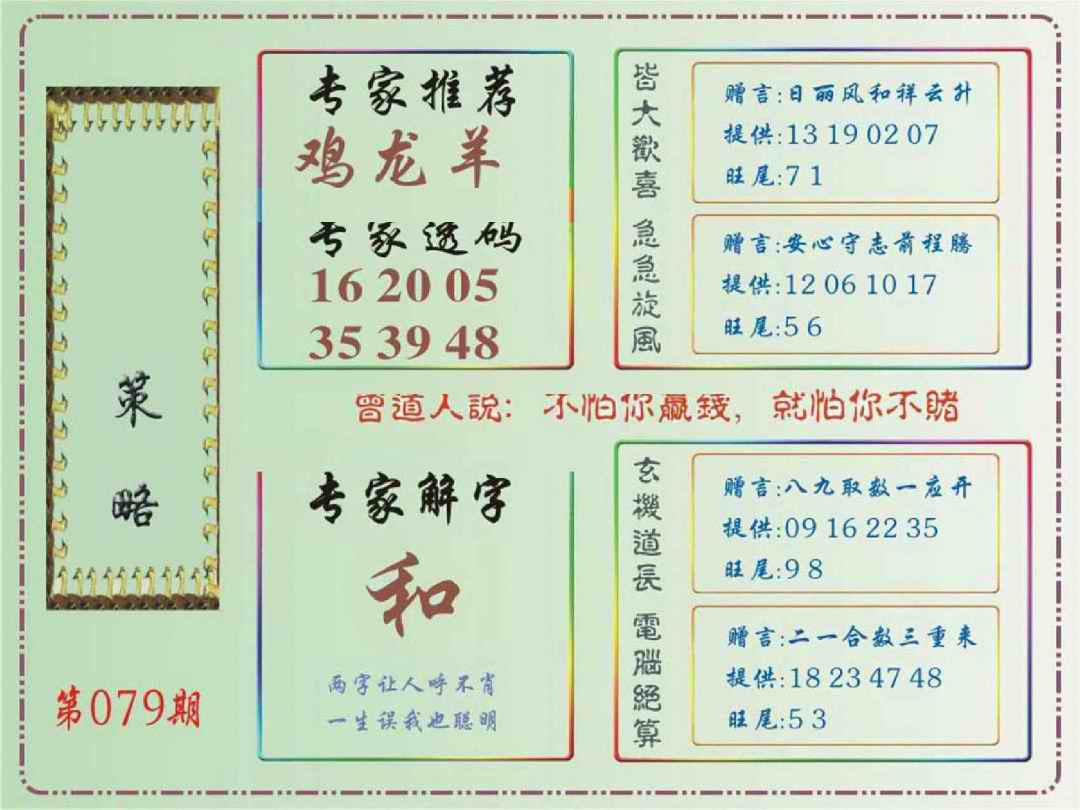 策略
第079期
专家推荐
鸡龙羊
专家透码
16 20 05
35 39 48
皆大歡喜
赠言:日丽风和祥云升
提供:13 19 02 07
旺尾:7 1
急急旋風
赠言:安心守志前程腾
提供:12 06 10 17
旺尾:5 6
曾道人說：不怕你贏錢，就怕你不賭
专家解字
和
两字让人呼不肖
一生误我也聪明
玄機道長
赠言:八九取数一应开
提供:09 16 22 35
旺尾:9 8
電腦絕算
赠言:二一合数三重来
提供:18 23 47 48
旺尾:5 3